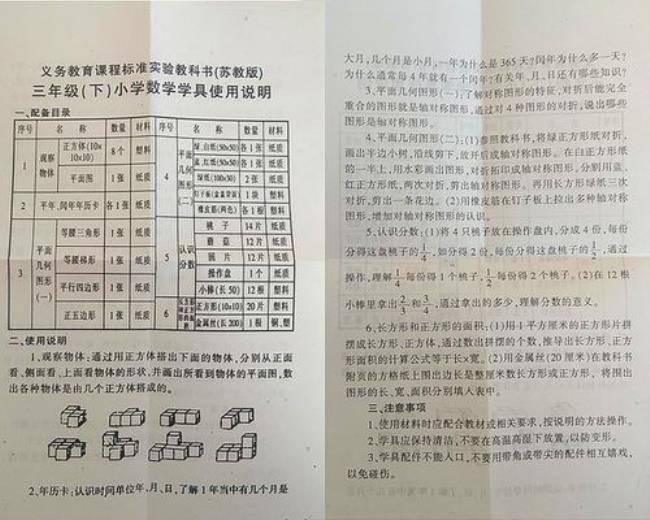 义务教育课程标准实验教科书(苏教版)
三年级(下)小学数学学具使用说明
一、配备目录
序号 名称 数量 材料 序号 名称 数量 材料
1 观察物体 正方体(10x10x10) 8个 塑料
平面图 1张 纸质
2 平年、闰年年历卡 各1张 纸质
3 平面几何图形(一) 等腰三角形 1张 纸质
等腰梯形 1张 纸质
平行四边形 1张 纸质
正五边形 1张 纸质
4 平面几何图形(二) 绿、白纸(50x50) 各1张 纸质
蓝、红纸(50x50) 各1张 纸质
绿纸(100x50) 2张 纸质
钉子板(盒盖背面) 1块 塑料
橡皮筋(两色) 各1根 塑料
5 认识分数 桃子 14片 纸质
蘑菇 12片 纸质
圆片 12片 纸质
操作盘 1个 纸质
小棒(长50) 12根 塑料
6 长方形和正方形的面积 正方形(10x10) 20片 塑料
金属丝(长200) 1根 铜、塑
二、使用说明
1、观察物体:通过用正方体搭出下面的物体,分别从正面
看、侧面看、上面看物体的形状,并画出所看到物体的平面图,数
出各种物体是由几个正方体搭成的。
2、年历卡:认识时间单位年、月、日,了解1年当中有几个月是
大月,几个月是小月,一年为什么是365天?闰年为什么多一天?
为什么通常每4年就有一个闰年?有关年、月、日还有哪些知识?
3、平面几何图形(一):了解对称图形的特征,对折后能完全
重合的图形就是轴对称图形,通过对4种图形的对折,说出哪些
图形是轴对称图形。
4、平面几何图形(二):(1)参照教科书,将绿正方形纸对折,
画出半边小树,沿线剪下,放开后成轴对称图形。在白正方形纸
的一半上,用水彩画出图形,对折拓印成轴对称图形,分别用蓝、
红正方形纸,两次对折,剪出轴对称图形。再用长方形绿纸三次
对折,剪出一条花边。(2)用橡皮筋在钉子板上拉出多种轴对称
图形,增加对轴对称图形的认识。
5、认识分数:(1)将4只桃子放在操作盘内,分成4份,每份
分得这盘桃子的1/4,如分得2份,每份分得这盘桃子的1/2,通过
操作,理解1/4每份得1个桃子,1/2每份得2个桃子。(2)在12根
小棒里拿出2/3和3/4,通过拿出的多少,理解分数的意义。
6、长方形和正方形的面积:(1)用1平方厘米的正方形片拼
摆成长方形、正方体,通过数出拼摆的个数,推导出长方形、正方
形面积的计算公式等于长×宽。(2)用金属丝(20厘米)在教科书
附页的方格纸上围出边长是整厘米数长方形或正方形,将围出
图形的长、宽、面积分别填入表中。
三、注意事项
1、使用材料时应配合教材或相关要求,按说明的方法操作。
2、学具应保持清洁,不要在高温高湿下放置,以防变形。
3、学具配件不能入口,不要用带角或带尖的配件相互嬉戏,
以免碰伤。